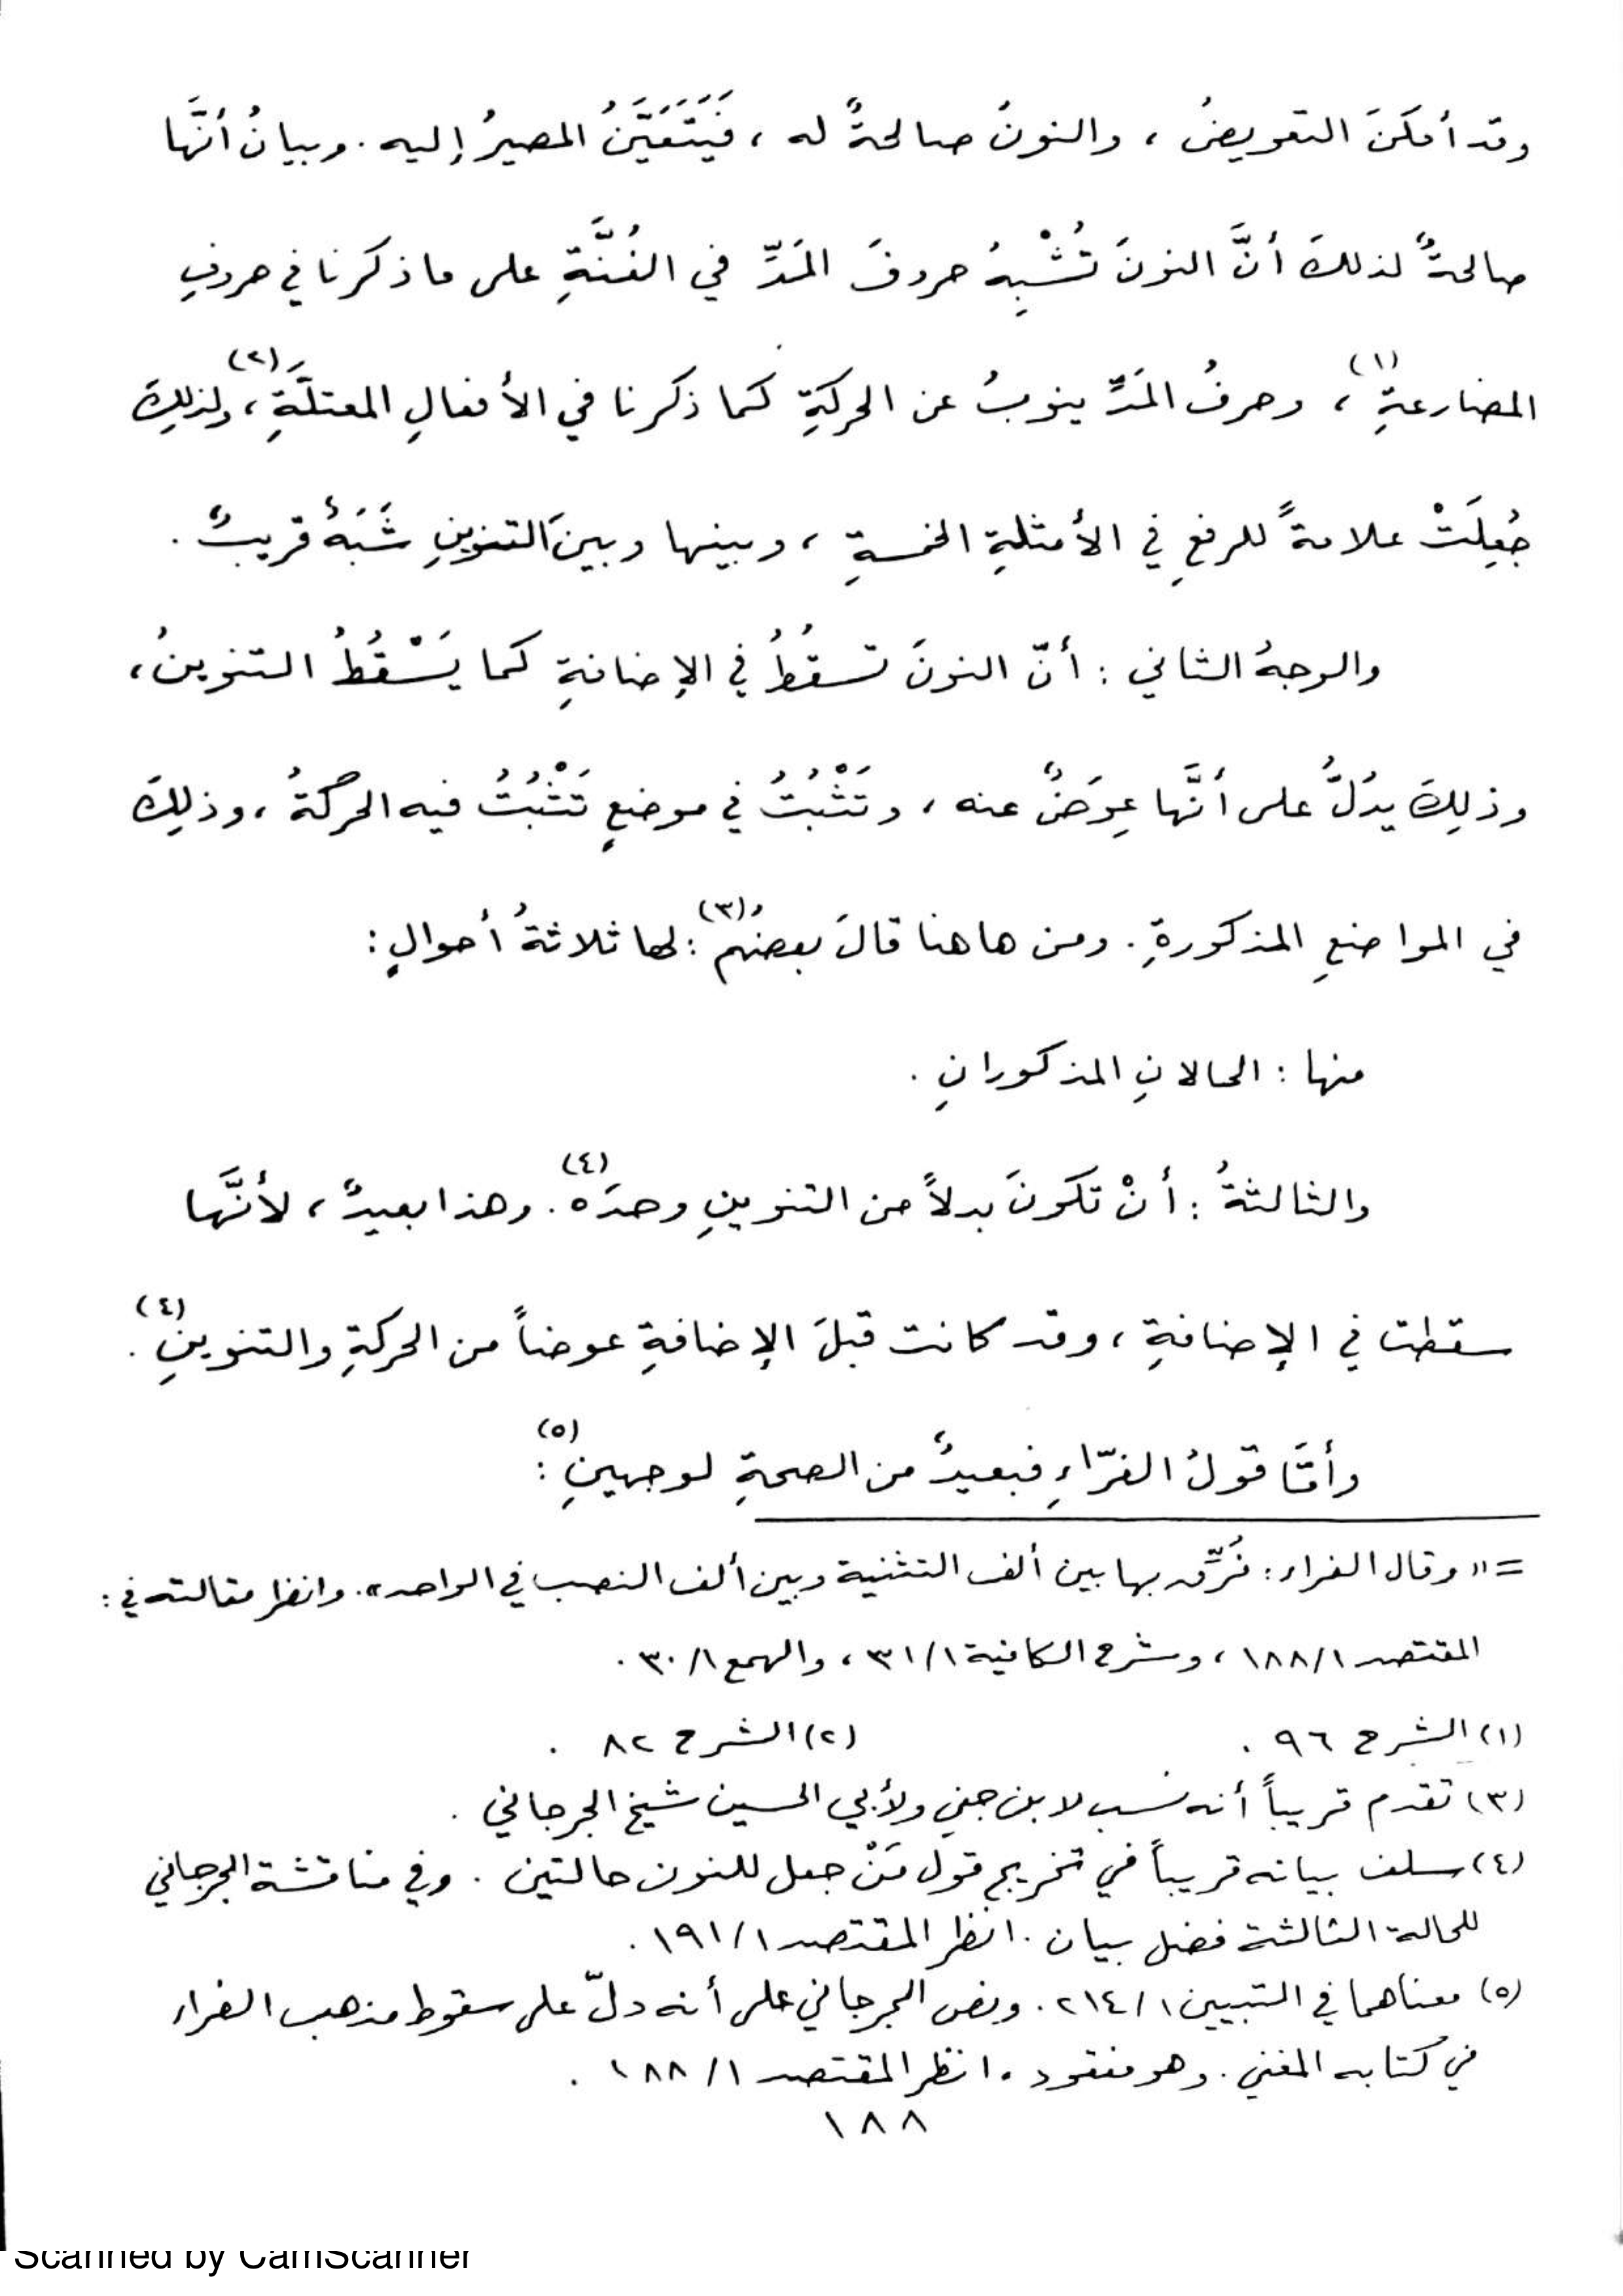 وقد أمكنَ التعويضُ ، والنونُ صالحةٌ له ، فَيَتَعَيَّنُ المصيرُ إليه . وبيانُ أنَّها
صالحةٌ لذلكَ أنَّ النونَ تُشْبِهُ حروفَ المَدِّ في الغُنَّةِ على ما ذكرنا في حروفِ
المضارعةِ (١) ، وحرفُ المَدِّ ينوبُ عن الحركةِ كما ذكرنا في الأفعالِ المعتلَّةِ (٢) ، ولذلِكَ
جُعِلَتْ علامةً للرفعِ في الأمثلةِ الخمسةِ ، وبينها وبينَ التنوينِ شَبَهٌ قريبٌ .
والوجهُ الثاني : أنّ النونَ تسقُطُ في الإضافةِ كما يَسْقُطُ التنوينُ ،
وذلِكَ يدُلُّ على أنَّها عِوَضٌ عنه ، وتَثْبُتُ في موضعٍ تَثْبُتُ فيه الحركةُ ، وذلِكَ
في المواضعِ المذكورةِ . ومن هاهنا قالَ بعضُهُم (٣) : لها ثلاثةُ أحوالٍ :
منها : الحالانِ المذكورانِ .
والثالثةُ : أنْ تكونَ بدلاً من التنوينِ وحدَه (٤) . وهذا بعيدٌ ، لأنَّها
سقطت في الإضافةِ ، وقد كانت قبلَ الإضافةِ عوضاً من الحركةِ والتنوينِ (٤) .
وأمَّا قولُ الفرّاءِ فبعيدٌ من الصحةِ لوجهينِ (٥) :
= « وقال الفراء : فُرِّق بها بين ألف التثنية وبين ألف النصب في الواحد » . وانظر مقالته في :
المقتصد ١/١٨٨ ، وشرح الكافية ١/٣١ ، والهمع ١/٣٠ .
(١) الشرح ٩٦ . (٢) الشرح ٨٢ .
(٣) تقدم قريباً أنه نسب لابن جني ولأبي الحسين شيخ الجرجاني .
(٤) سلف بيانه قريباً في تخريج قول مَنْ جعل للنون حالتين . وفي مناقشة الجرجاني
للحالة الثالثة فضل بيان . انظر المقتصد ١/١٩١ .
(٥) معناهما في التبيين ١/٢١٤ . ونص الجرجاني على أنه دلّ على سقوط مذهب الفراء
في كتابه المغني . وهو مفقود . انظر المقتصد ١/١٨٨ .
١٨٨
Scanned by CamScanner